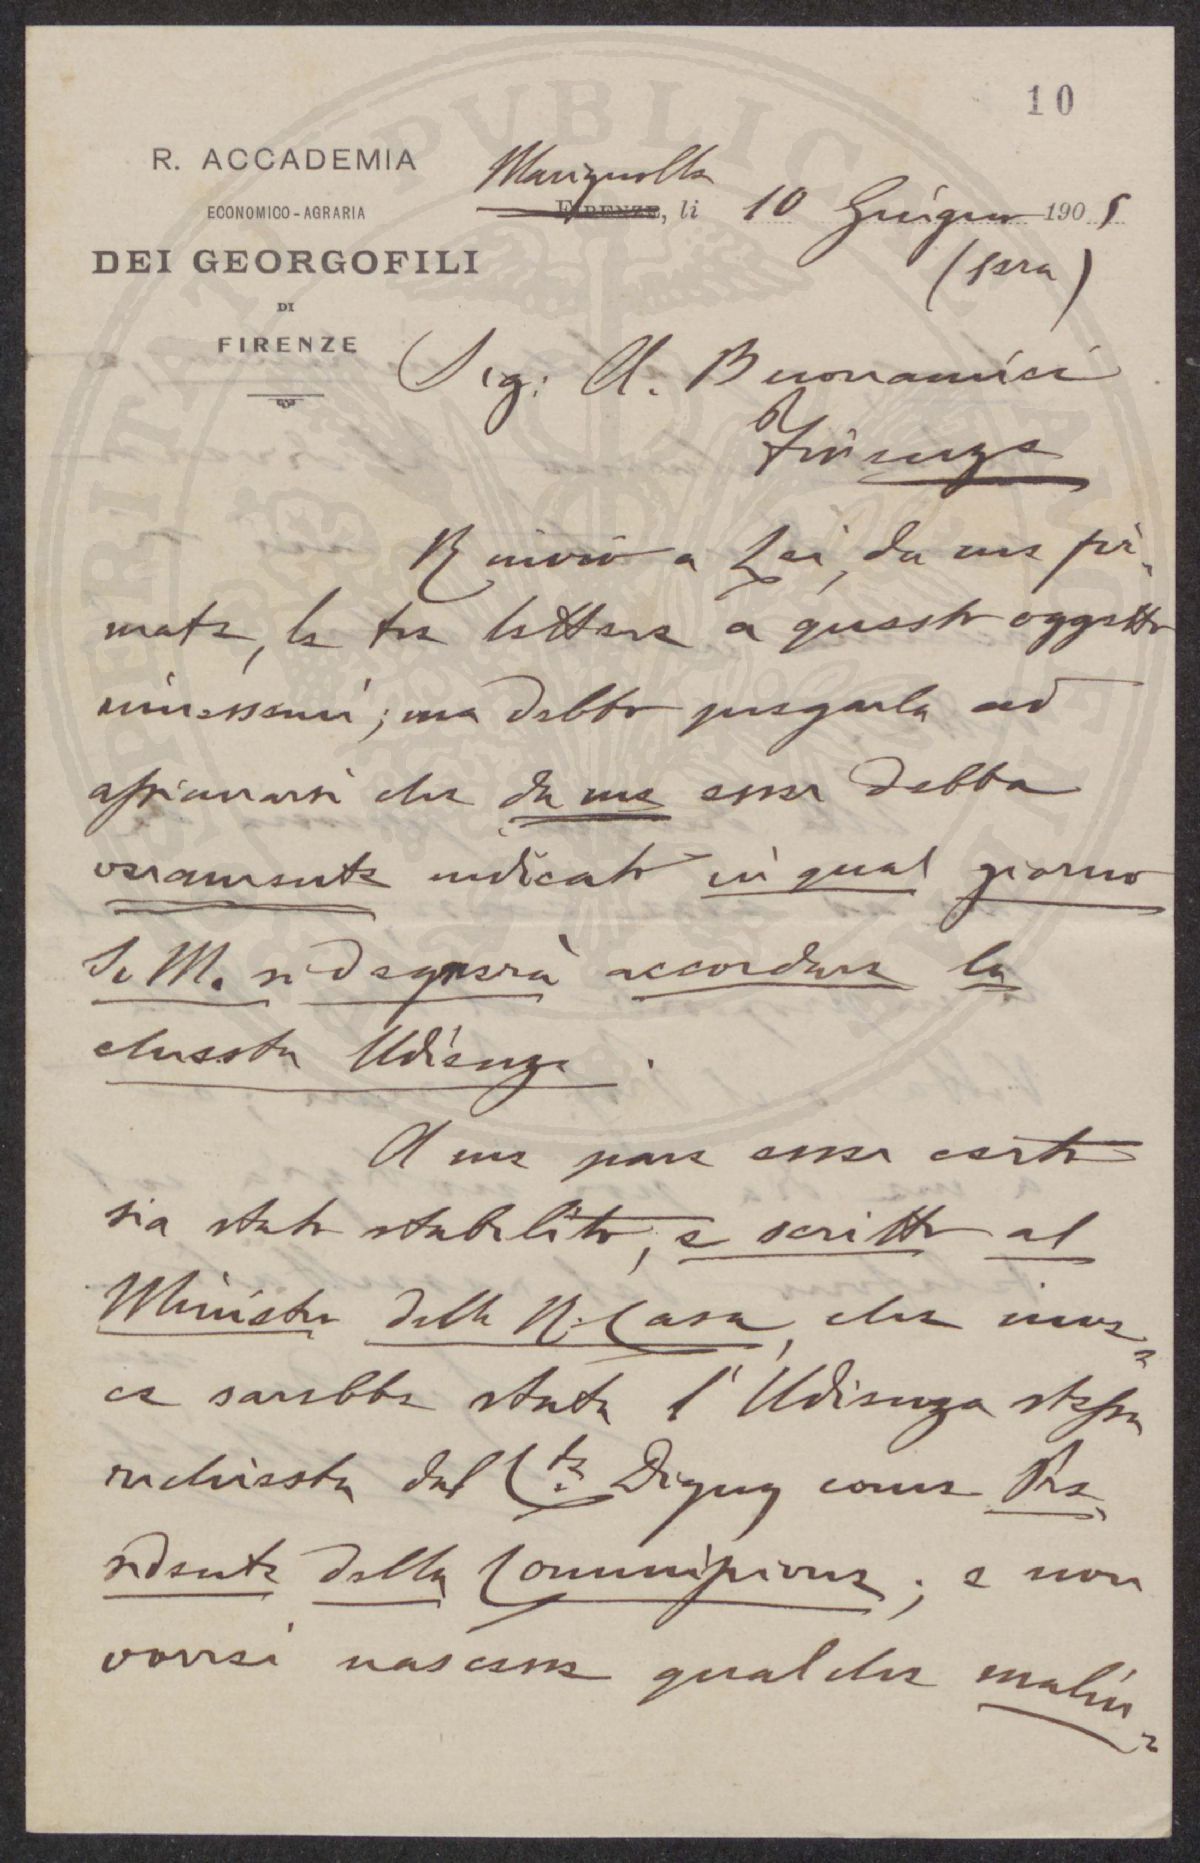 10
R. ACCADEMIA
ECONOMICO-AGRARIA
DEI GEORGOFILI
DI
FIRENZE
Marignolle
FIRENZE, li 10 Giugno 1905
(sera)
Sig: A. Buonamici
Firenze
Rinvio a Lei, da me fir-
mate, le tre lettere a questo oggetto
rimessemi; ma debbo pregarla ad
assicurarsi che da me esser debba
veramente indicato in qual giorno
S. M. si degnerà accordare la
chiesta Udienza.
A me pare esser certo
sia stato stabilito, e scritto al
Ministro della R. Casa, che inve=
ce sarebbe stata l'Udienza stessa
richiesta dal Cte. Digny come Pre-
sidente della Commissione; e non
vorrei nascesse qualche malin=